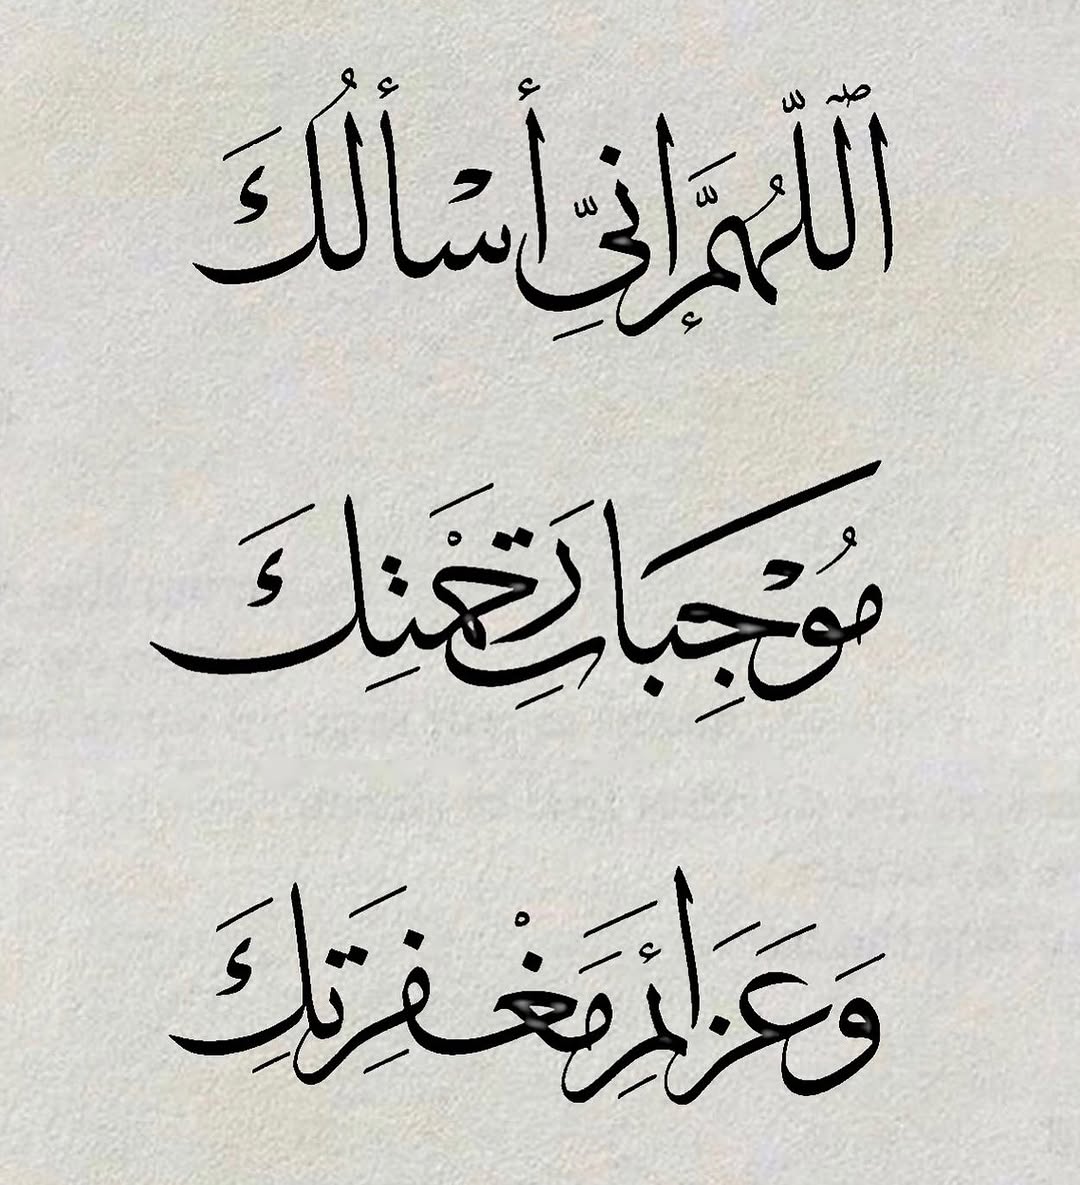 اَللّٰهُمَّ إنِّي أَسْأَلُكَ
مُوْجِبَاتِ رَحْمَتِكَ
وَعَزَائِمَ مَغْفِرَتِكَ